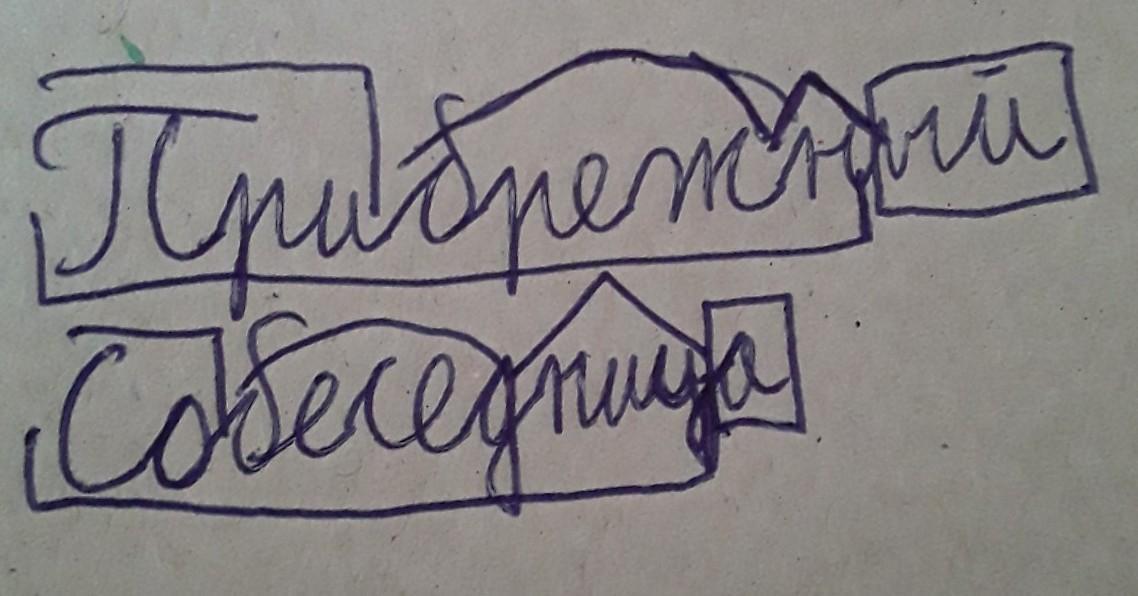 Прибрежный
Собеседница